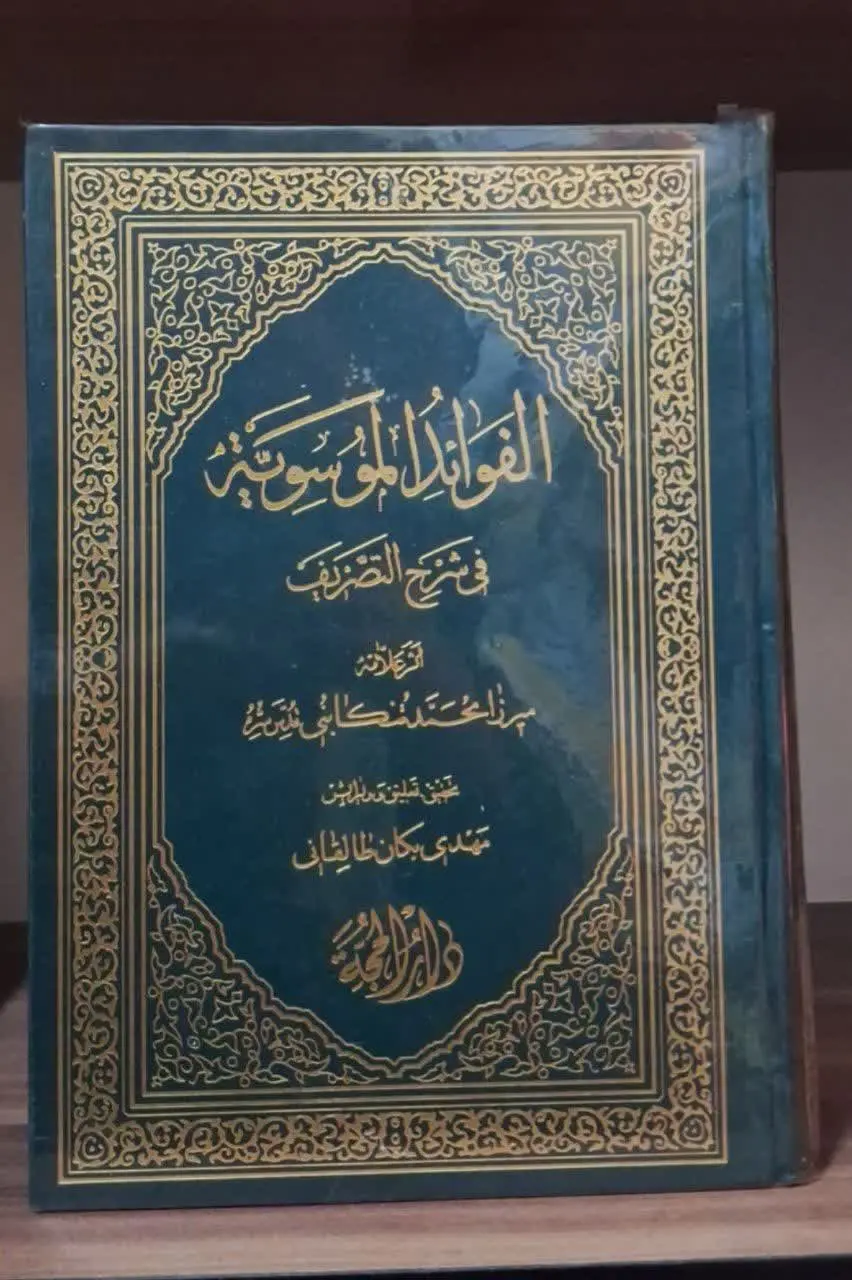 الفَوَائِدُ المُوسَوِيَّة
في شَرحِ التَصريف
اثر علامه
میرزا محمد تنکابنی قدس سره
تحقیق تعلیق و ویرایش
مهدی یکان طالقانی
دار الحجة